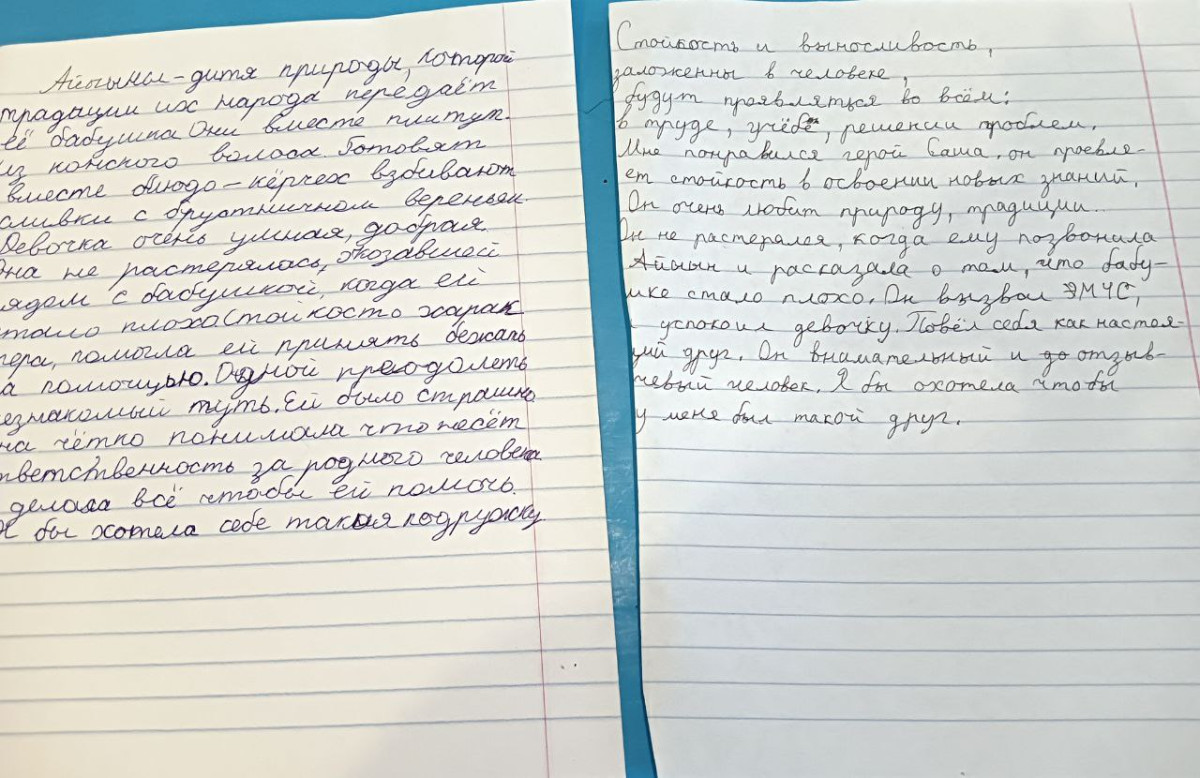 Айыына - дитя природы, которой
традации их народа передаёт
её бабушка Они вместе плитут
из конского волоса. Готовят
вместе блюдо - кёрчех взбивают
сливки с брустничном вереньем.
Девочка очень умная, добрая.
Она не растерялась, окозавшей
рядом с бабушкой, когда ей
стало плоха Стойкосто харак
тера, помогла ей принять бежать
за помощью. Одной преодолеть
незнакомый путь. Ей было страшно
на чётко понимала что несёт
ответственность за родного человека
делала всё чтобы ей помочь.
Я бы хотела себе такая подружку
Стойкость и выносливость,
заложенны в человеке,
будут проявляться во всём:
в труде, учёбе, решении проблем.
Мне понравился герой Саша, он проевля-
ет стойкость в освоении новых знаний.
Он очень любит природу, традиции.
Он не растерался, когда ему позвонила
Айыын и расказала о том, что бабу-
шке стало плохо. Он вызвал ЭМЧС,
успокоил девочку. Повёл себя как настоя-
щий друг. Он внимательный и до отзыв-
чевый человек. Я бы охотела чтобы
у меня был такой друг.